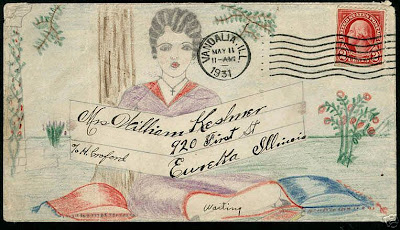 VANDALIA, ILL.
MAY 11
11-AM
1931
UNITED STATES POSTAGE
Mrs William Keshner
920 First St
Eureka Illinois
℅ H. Croford
Waiting